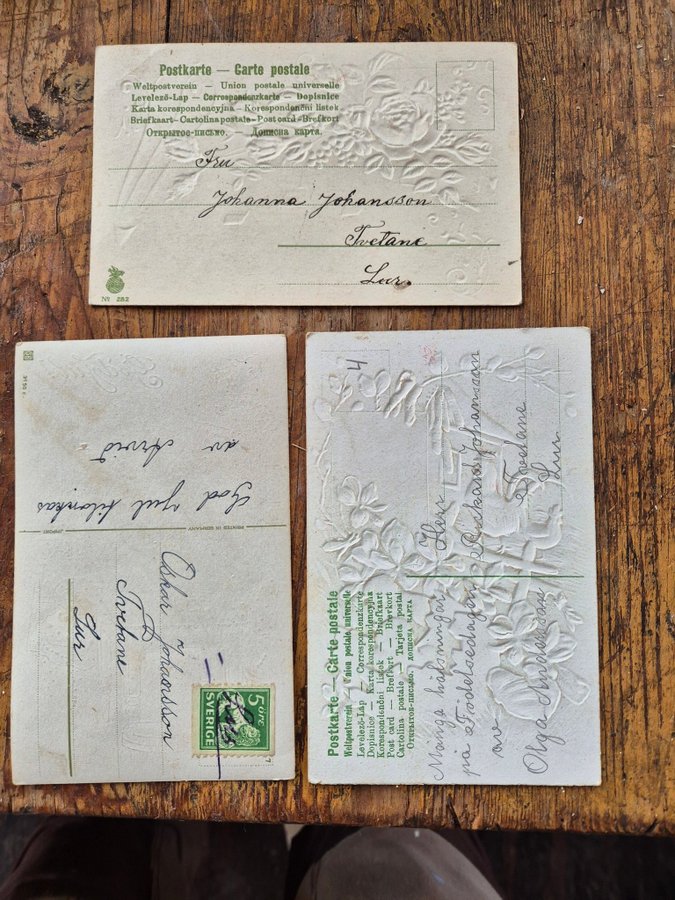 Postkarte — Carte postale
Weltpostverein — Union postale universelle
Levelező-Lap — Correspondenzkarte — Dopisnice
Karta korespondencyjna — Korespondenční listek
Briefkaart — Cartolina postale — Post card — Brefkort
Открытое письмо. — Дописна карта.
Fru
Johanna Johansson
Tvetane
Lur.
No 282
God jul tilönskas
av Arvid
PRINTED IN GERMANY
IMPORT
Oskar Johansson
Tvetane
Lur
5 öre
SVERIGE
4
Postkarte — Carte postale
Weltpostverein — Union postale universelle
Levelező-Lap — Correspondenzkarte
Dopisnice — Karta korespondencyjna
Korespondenční listek — Briefkaart
Post card — Brefkort — Brevkort
Cartolina postale — Tarjeta postal
Открытое-письмо. дописна карта
Många hälsningar
på Födelsedagen
av
Olga Andersson
Herr
Rickard Johansson
Tvetane
Lur